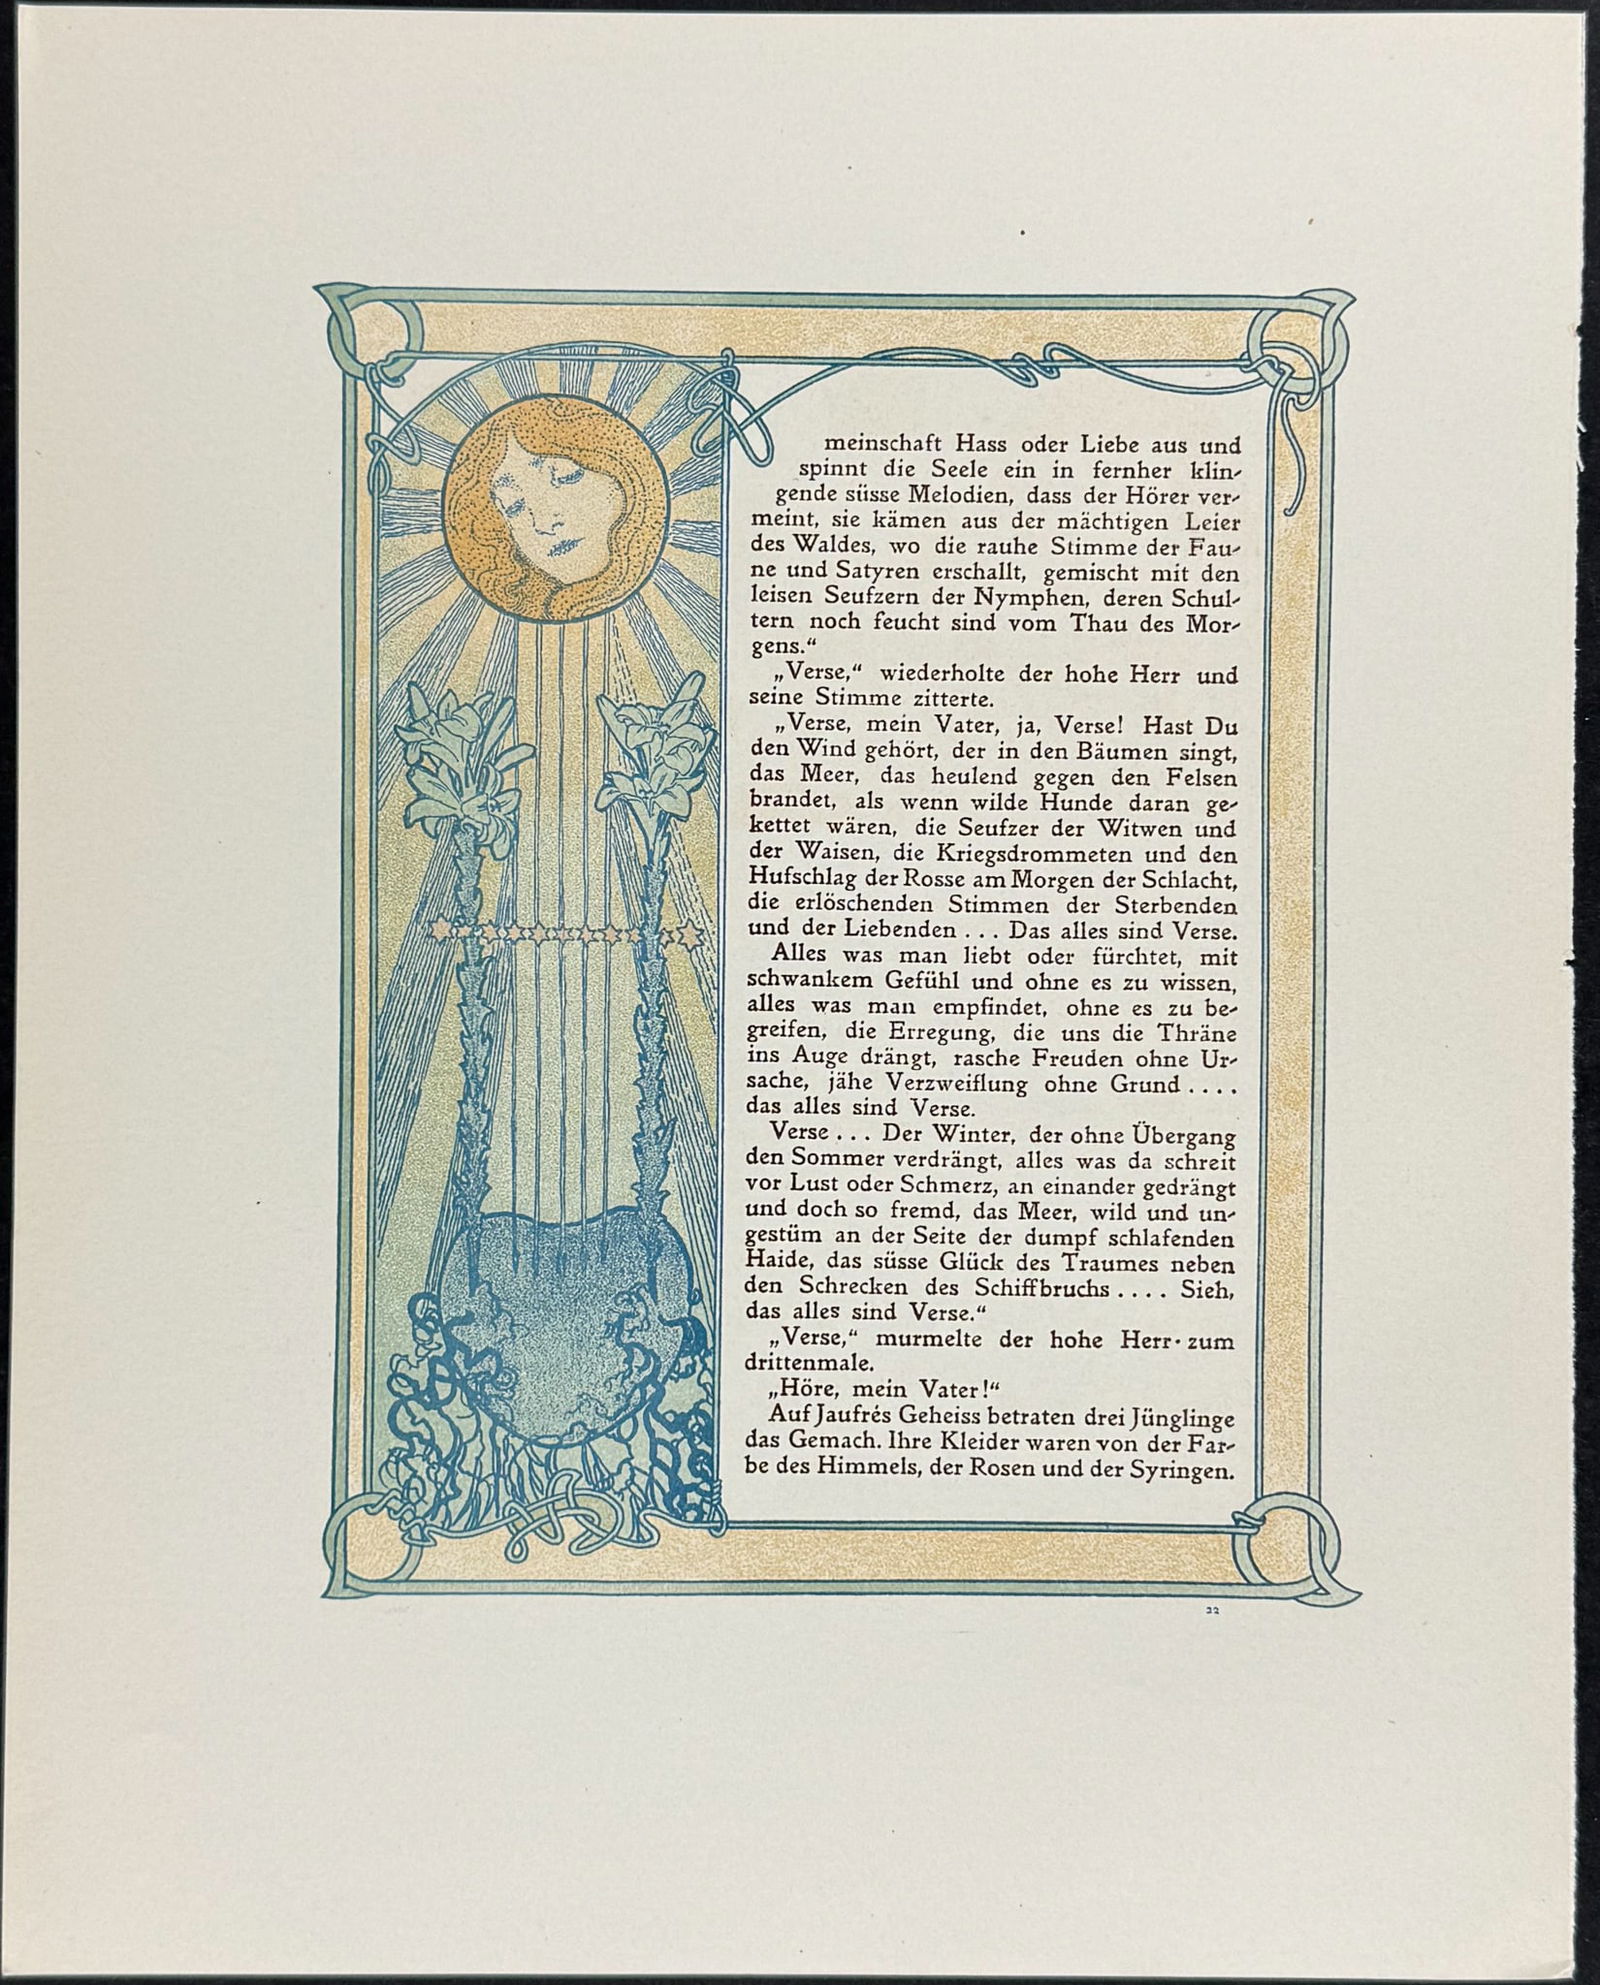 meinschaft Hass oder Liebe aus und
spinnt die Seele ein in fernher klin-
gende süsse Melodien, dass der Hörer ver-
meint, sie kämen aus der mächtigen Leier
des Waldes, wo die rauhe Stimme der Fau-
ne und Satyren erschallt, gemischt mit den
leisen Seufzern der Nymphen, deren Schul-
tern noch feucht sind vom Thau des Mor-
gens.“
„Verse,“ wiederholte der hohe Herr und
seine Stimme zitterte.
„Verse, mein Vater, ja, Verse! Hast Du
den Wind gehört, der in den Bäumen singt,
das Meer, das heulend gegen den Felsen
brandet, als wenn wilde Hunde daran ge-
kettet wären, die Seufzer der Witwen und
der Waisen, die Kriegsdrommeten und den
Hufschlag der Rosse am Morgen der Schlacht,
die erlöschenden Stimmen der Sterbenden
und der Liebenden . . . Das alles sind Verse.
Alles was man liebt oder fürchtet, mit
schwankem Gefühl und ohne es zu wissen,
alles was man empfindet, ohne es zu be-
greifen, die Erregung, die uns die Thräne
ins Auge drängt, rasche Freuden ohne Ur-
sache, jähe Verzweiflung ohne Grund . . . .
das alles sind Verse.
Verse . . . Der Winter, der ohne Übergang
den Sommer verdrängt, alles was da schreit
vor Lust oder Schmerz, an einander gedrängt
und doch so fremd, das Meer, wild und un-
gestüm an der Seite der dumpf schlafenden
Haide, das süsse Glück des Traumes neben
den Schrecken des Schiffbruchs . . . . Sieh,
das alles sind Verse.“
„Verse,“ murmelte der hohe Herr · zum
drittenmale.
„Höre, mein Vater!“
Auf Jaufrés Geheiss betraten drei Jünglinge
das Gemach. Ihre Kleider waren von der Far-
be des Himmels, der Rosen und der Syringen.
22